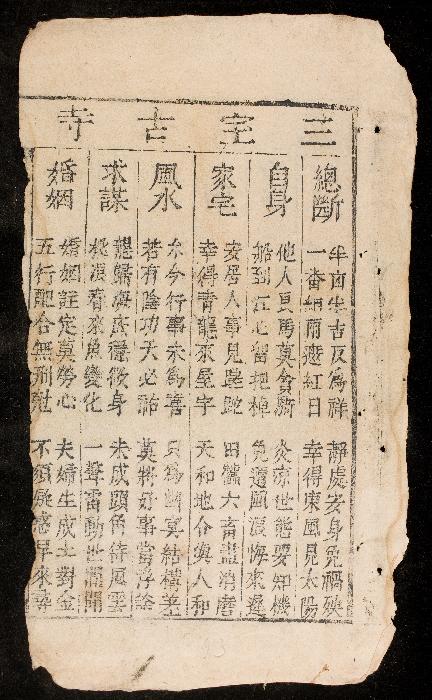 三宝古寺
總斷
半凶半吉反為祥 靜處安身免禍殃
一番細雨遮紅日 幸得東風見太陽
自身
他人良馬莫貪騎 炎涼世態要知機
船到江心留把棹 免遭風浪悔來遲
家宅
安居人事見蹉跎 田蠶六畜盡消磨
幸得青龍來屋宇 天和地合與人和
風水
尔今行事未為善 只為幽冥結構差
若有陰功天必祐 莫將好事當浮
求謀
龍歸海底穩微身 未成頭角待風雲
桃浪春來魚變化 一聲雷動世間聞
婚姻
婚姻註定莫勞心 夫婦生成土對金
五行配合無刑尅 不須疑惑早來尋